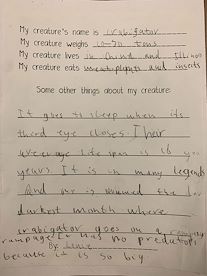 My creature's name is crabigator
My creature weighs 10-20 tons
My creature lives in China and Illinois
My creature eats meat, plants and insects
Some other things about my creature:
It goes to sleep when its
third eye closes. Their
average life span is 16
years. It is in many legends
And one is named the
darkest month where
crabigator goes on a rampage
rampage. It has no predators
By
because it is so big